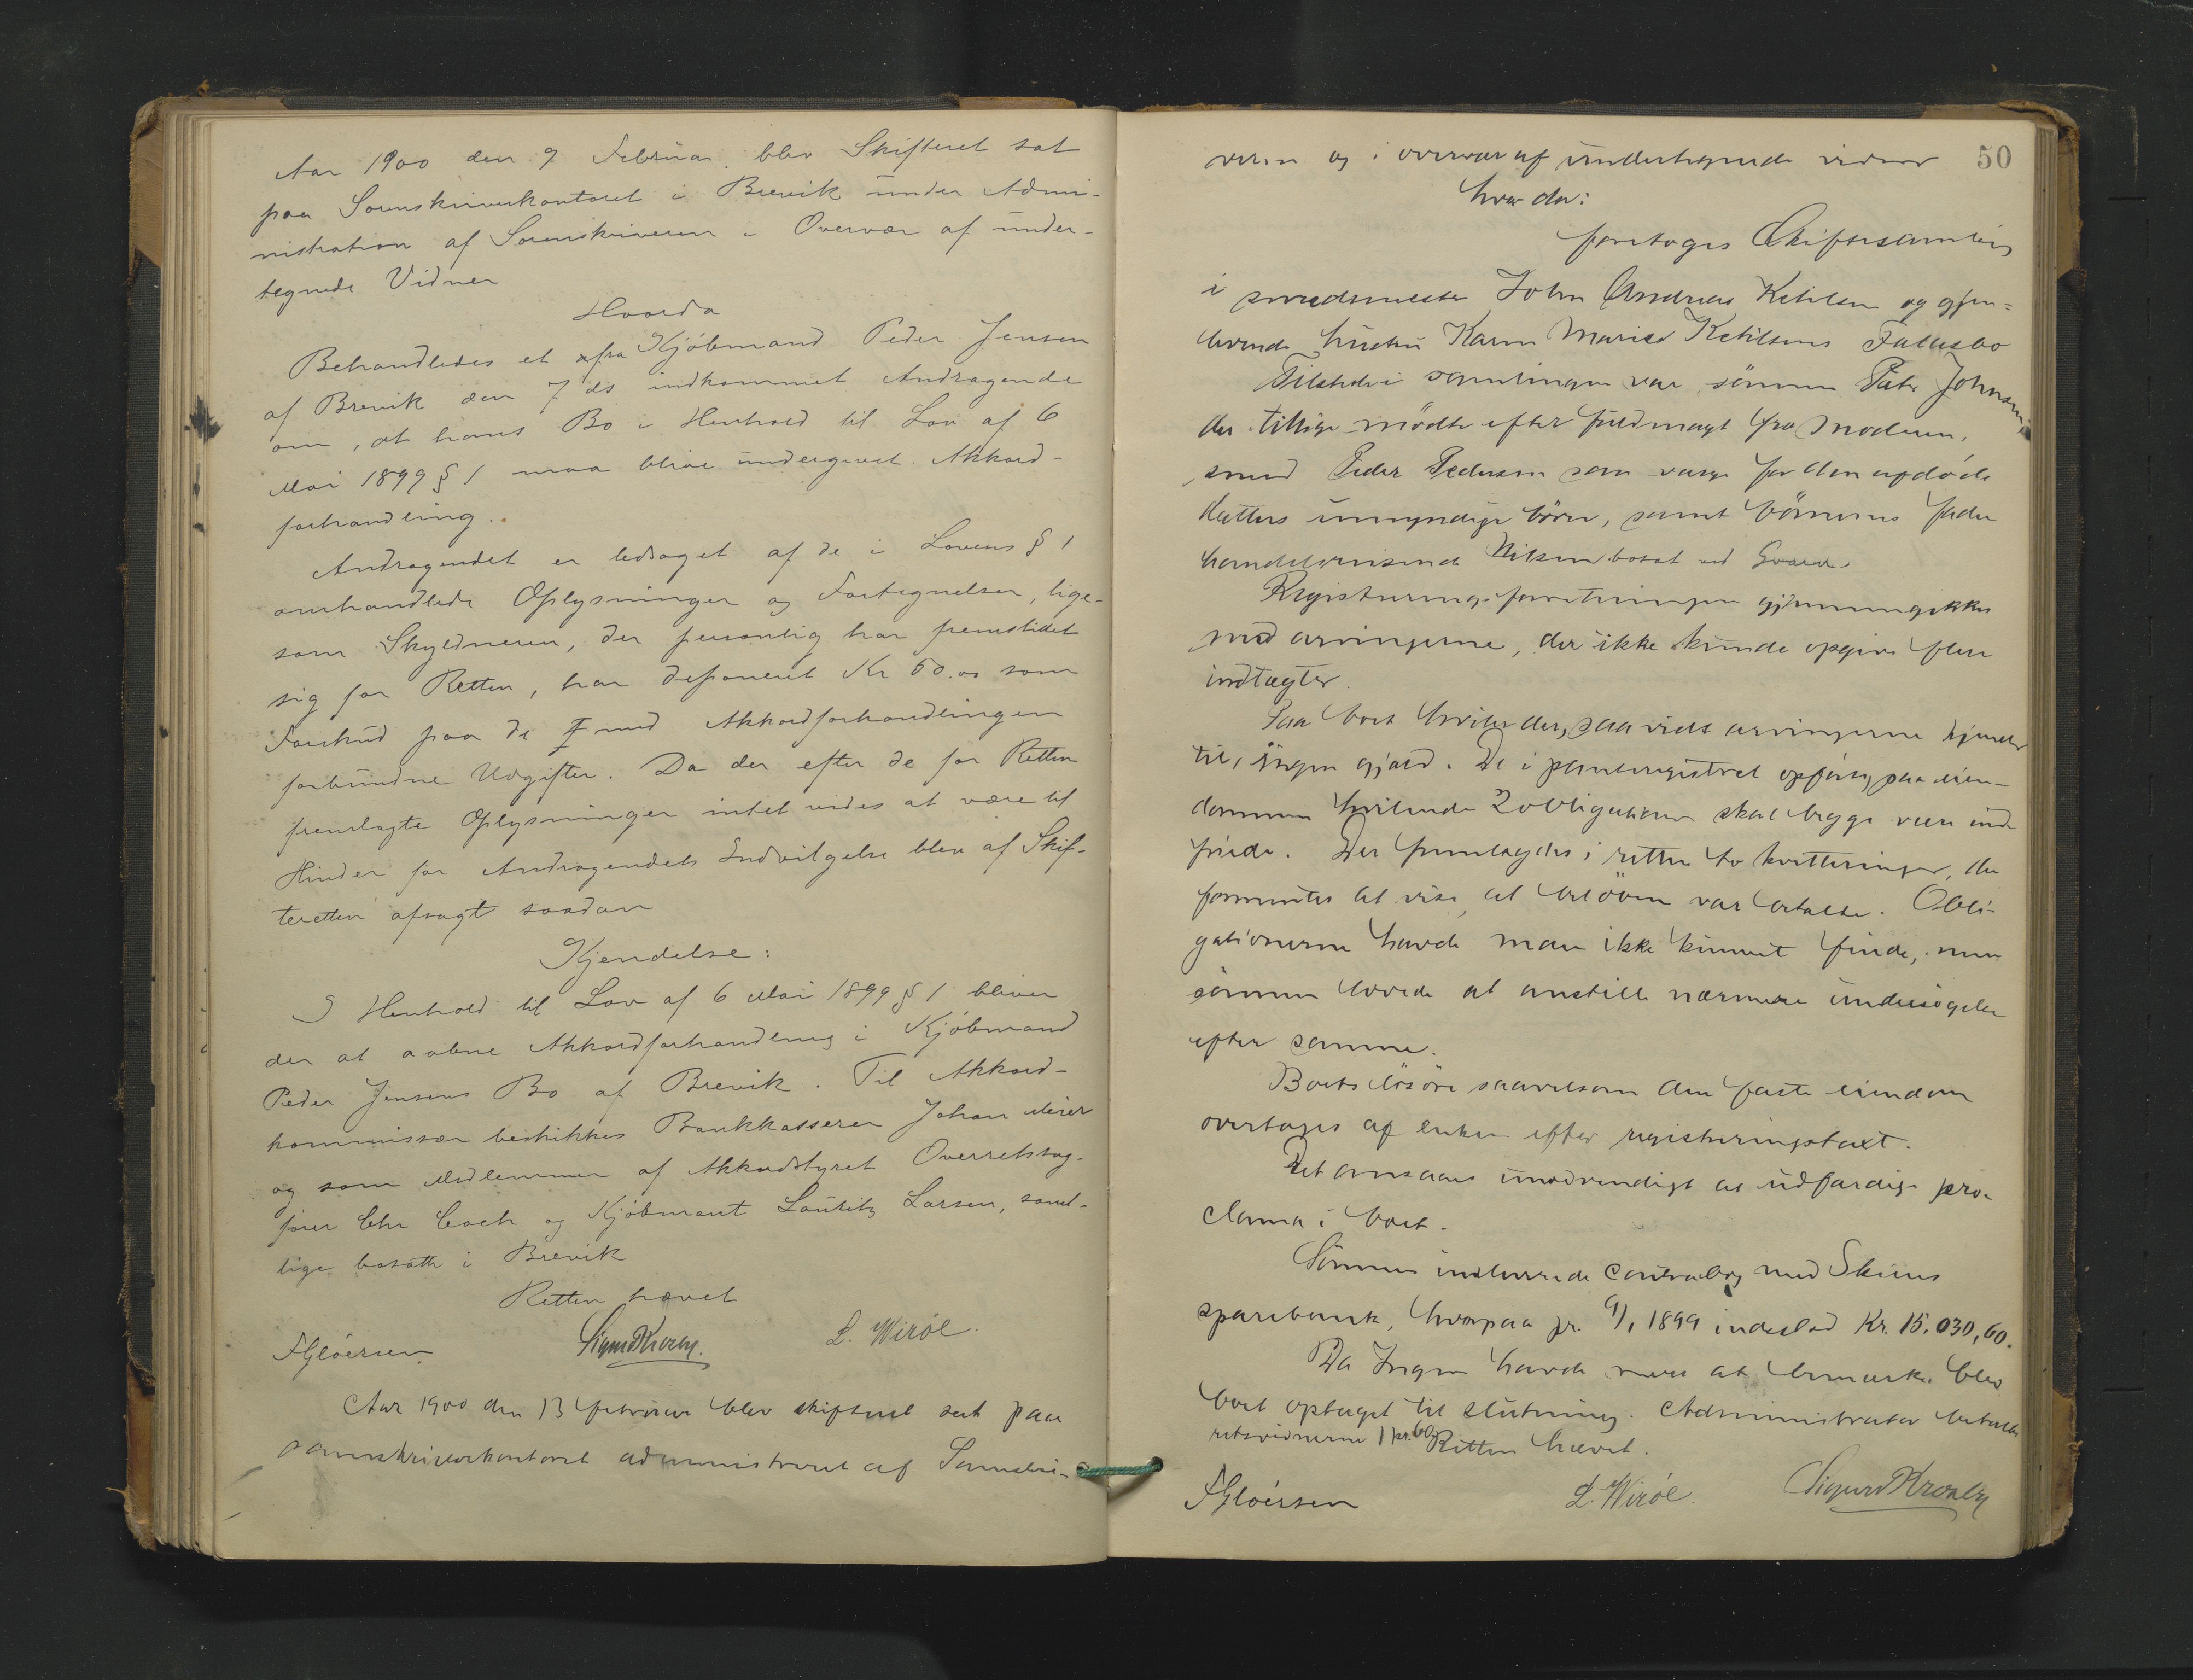 Aar 1900 den 9 Februar. blev Skifteret sat
paa Sorenskriverkontoret i Brevik under Admi-
nistration af Sorenskriveren i Overvær af under-
tegnede Vidner
Hvorda
Behandledes et fra Kjøbmand Peder Jensen
af Brevik den 7 ds indkommet Andragende
om, at hans Bo i Henhold til Lov af 6
Mai 1899 § 1 maa blive undergivet Akkord-
forhandling.
Andragendet er ledsaget af de i Lovens § 1
omhandlede Oplysninger og Fortegnelser, lige-
som Skyldneren, der personlig har fremstidet
sig for Retten, har deponeret Kr 50.00 som
Forskud paa de med Akkordforhandlingen
forbundne Udgifter. Da der efter de for Retten
fremlagte Oplysninger intet vides at være til
Hinder for Andragendets Indvilgelse blev af Skif-
teretten afsagt saadan
Kjendelse:
I Henhold til Lov af 6 Mai 1899 § 1 bliver
der at aabne Akkordforhandling i Kjøbmand
Peder Jensens Bo af Brevik. Til Akkord-
kommissær beskikkes Bankkasserer Johan Meier
og som Medlemmer af Akkordstyret Overretssag-
fører Chr Coch og Kjøbmant Lauritz Larsen, samt-
lige bosatte i Brevik
Retten hævet
FGloërsen Sigurd Kroely. L. Wirøe.
Aar 1900 den 13 februar blev skifteret sat paa
sorenskriverkontoret administreret af Sorenskri-
50
veren og i overvær af undertegnede vidner
hvor da:
foretoges Skiftesamling
i smedmester John Andreas Ketilsen og gjen-
levende hustru Karen Marie Ketilsens Fællesbo
Tilstede i samlingen var sønnen Peter Johnsen,
der tillige mødte efter fuldmagt fra moderen,
smed Peder Pedersen som verge for den afdøde
datters umyndige børn, samt børnenes fader
handelsreisende Nilsen bosat ved
Registreringsforretningen gjennemgikkes
med arvingerne, der ikke kunde opgive flere
indtægter.
Paa boet hviler der, saavidt arvingerne kjender
til, ingen gjæld. De i panteregistret opførte, paa eien-
dommen hvilende 2 obligationer skal begge være ind
friede. Der fremlagdes i retten to kvitteringer, der
formentes at vise, at beløben var betalte. Obli-
gationerne havde man ikke kunnet finde, men
sønnen lovede at anstille nærmere undersøgelse
efter samme.
Boets løsøre saavelsom den faste eiendom
overtages af enken efter registreringstaxt.
Det ansaaes unødvendigt at udfærdige pro-
clama i boet.
Sønnen indleverede contrabog med Skiens
sparebank, hvorpaa pr. 9/1 1899 indestod Kr. 15.030,60.
Da Ingen havde mere at bemærke blev
boet optaget til slutning. Administrator betalte
retsvidnerne 1 kr. 60. Retten hævet.
FGloërsen L. Wirøe. Sigurd Kroely